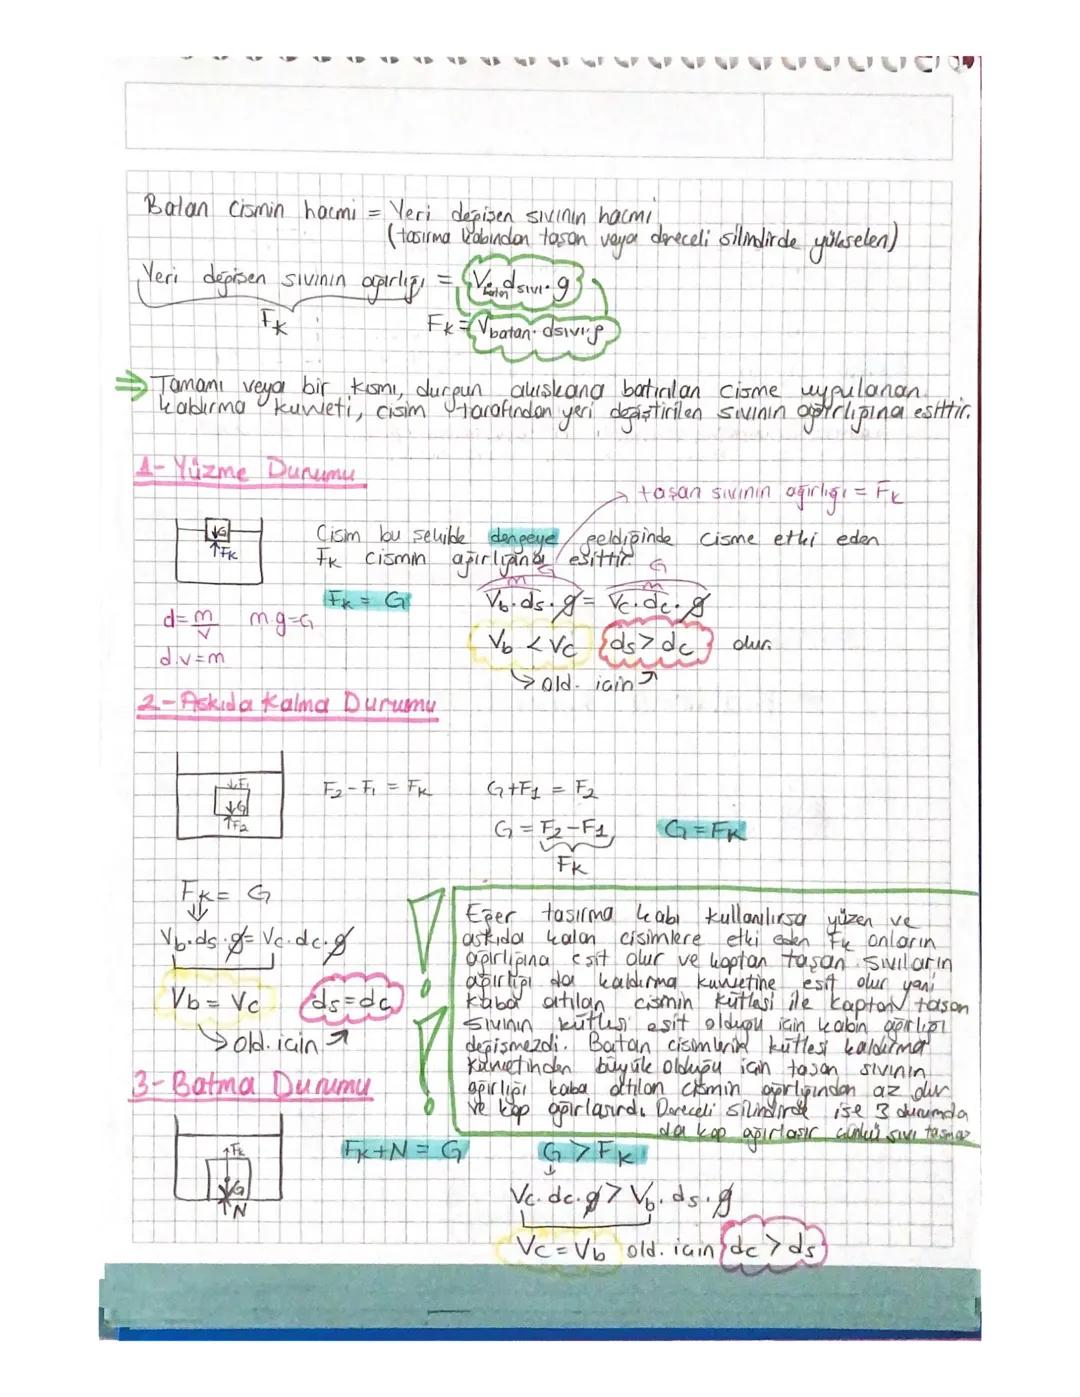 Batan cismin hacmi = Yeri değişen sıvının hacmi
(taşırma kabından taşan veya dereceli silindirde yükselen)
Yeri değişen sıvının ağırlığı = Vbatan dsıvı . g
FK
FK = Vbatan . dsıvı . g
⇒ Tamamı veya bir kısmı, durgun akışkana batırılan cisme uygulanan
kaldırma kuvveti, cisim tarafından yeri değiştirilen sıvının ağırlığına eşittir.
1- Yüzme Durumu
taşan sıvının ağırlığı = FK
G
FK
Cisim bu şekilde dengeye geldiğinde cisme etki eden
FK cismin ağırlığına eşittir.
G G
m m
FK = G
Vb . ds . g = Vc . dc . g
d = m/V m.g=G
d.v=m
Vb < Vc ds > dc olur.
→ old. için ↗
2- Askıda Kalma Durumu
F1
G
F2
F2 - F1 = FK
G + F1 = F2
G = F2 - F1
FK
G = FK
FK = G
Vb . ds . g = Vc . dc . g
Vb = Vc ds = dc
→ old. için ↗
!
!
Eğer taşırma kabı kullanılırsa yüzen ve
askıda kalan cisimlere etki eden FK onların
ağırlığına eşit olur ve kaptan taşan sıvıların
ağırlığı da kaldırma kuvvetine eşit olur yani
kaba atılan cismin kütlesi ile kaptan taşan
sıvının kütlesi eşit olduğu için kabın ağırlığı
değişmezdi. Batan cisimlerin kütlesi kaldırma
kuvvetinden büyük olduğu için taşan sıvının
ağırlığı kaba atılan cismin ağırlığından az olur
ve kap ağırlaşırdı. Dereceli silindirde ise 3 durumda
da kap ağırlaşır çünkü sıvı taşmaz
3- Batma Durumu
FK
G
N
FK + N = G
G > FK
Vc . dc . g > Vb . ds . g
Vc = Vb old. için dc > ds